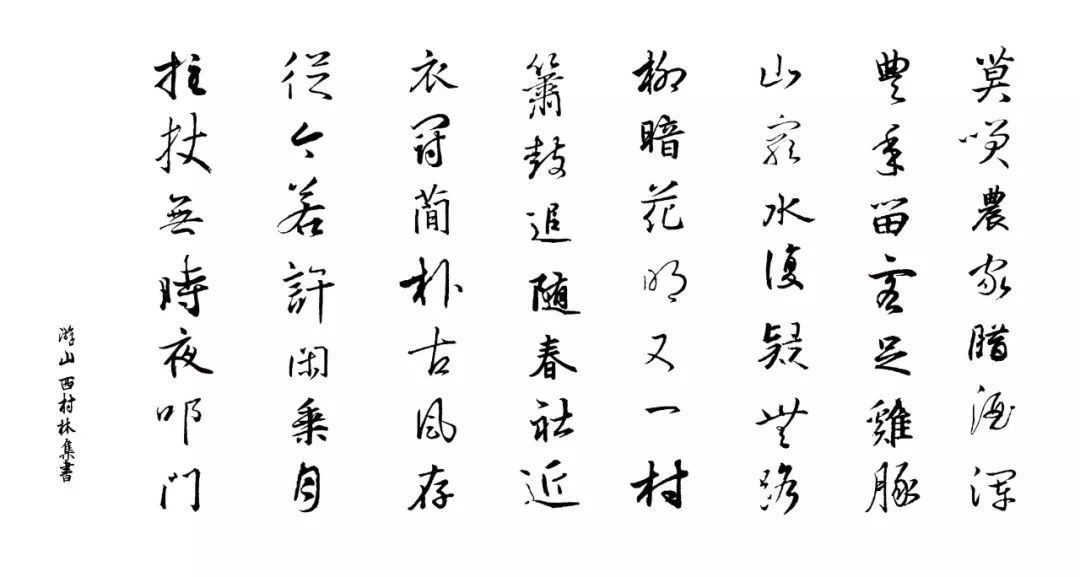 莫笑農家腊酒渾
豊年留客足雞豚
山窮水復疑無路
柳暗花明又一村
簫鼓追随春社近
衣冠蕳朴古風存
從今若許閑乗月
拄杖無時夜叩門
游山西村林集書